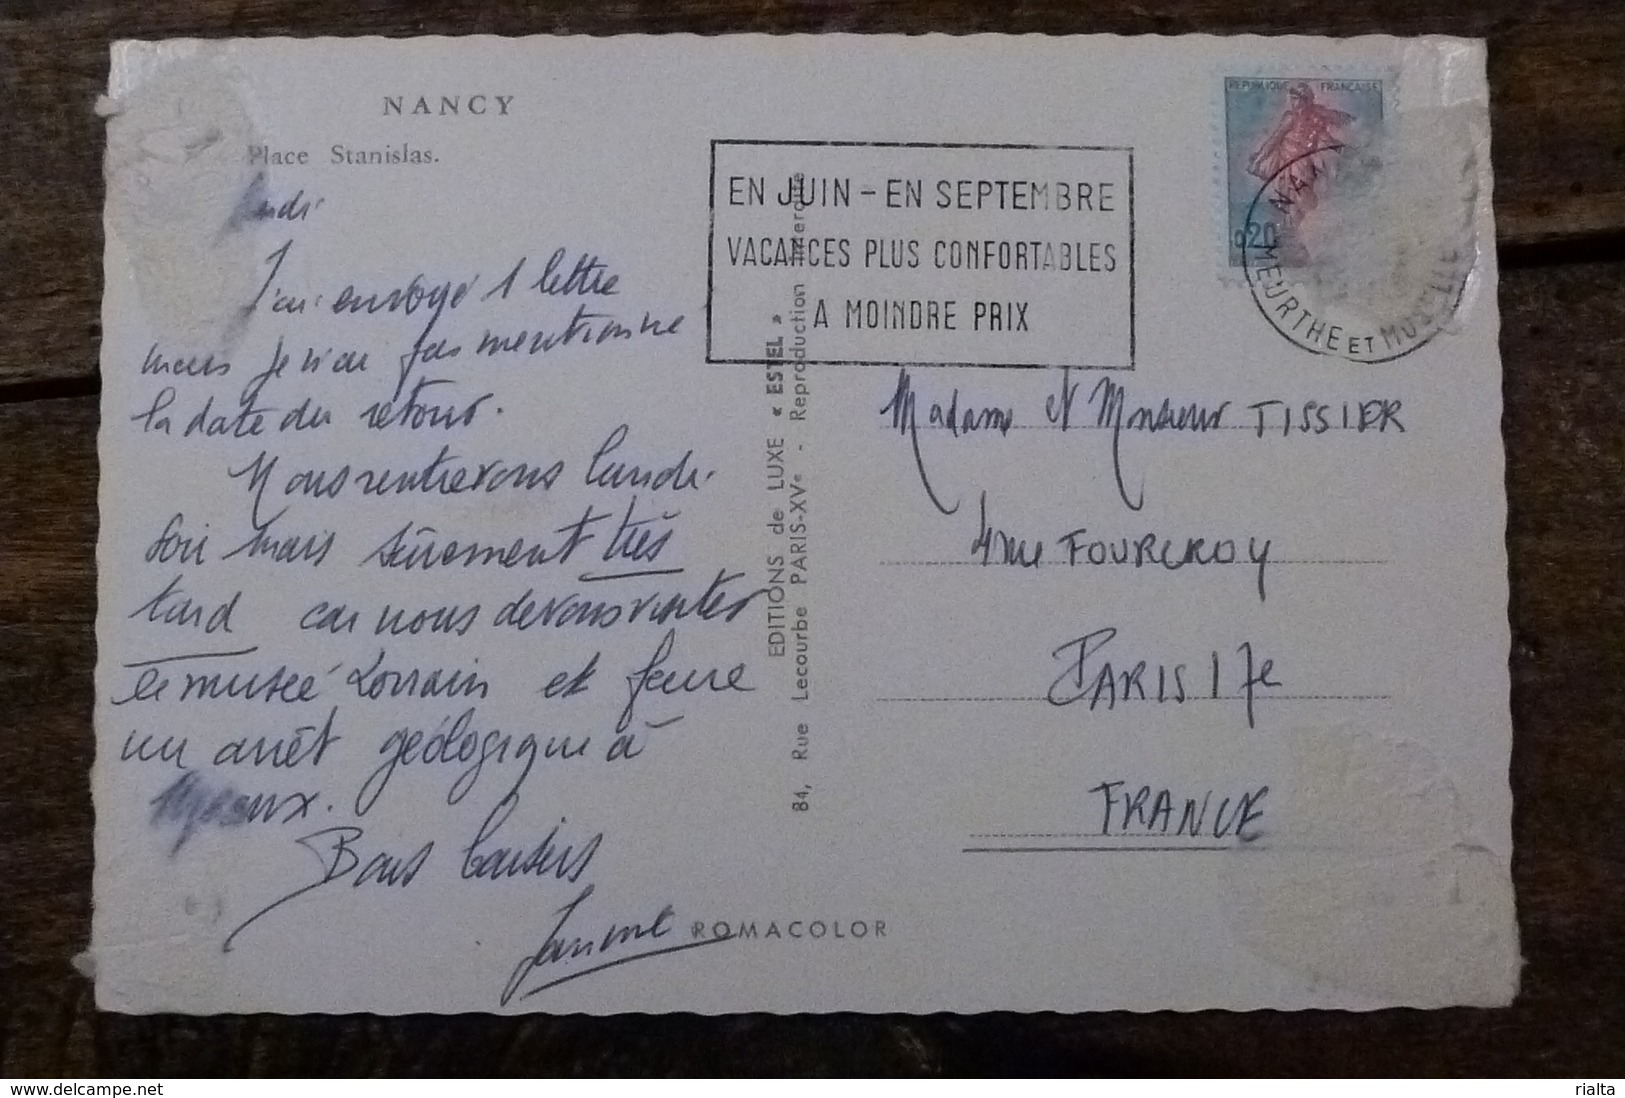 NANCY
Place Stanislas.
J'ai envoyé 1 lettre
mais je n'ai pas mentionné
la date du retour.
Nous rentrerons lundi
soir mais sûrement très
tard car nous devons visiter
le musée Lorrain et faire
un arrêt géologique à
Bons baisers
EDITIONS de LUXE « ESTEL »
84, Rue Lecourbe PARIS-XVe - Reproduction interdite
ROMACOLOR
EN JUIN - EN SEPTEMBRE
VACANCES PLUS CONFORTABLES
A MOINDRE PRIX
REPUBLIQUE FRANÇAISE
0,20
MEURTHE ET MOSELLE
Madame et Monsieur TISSIER
4 rue FOURCROY
PARIS 17e
FRANCE
www.delcampe.net
rialta